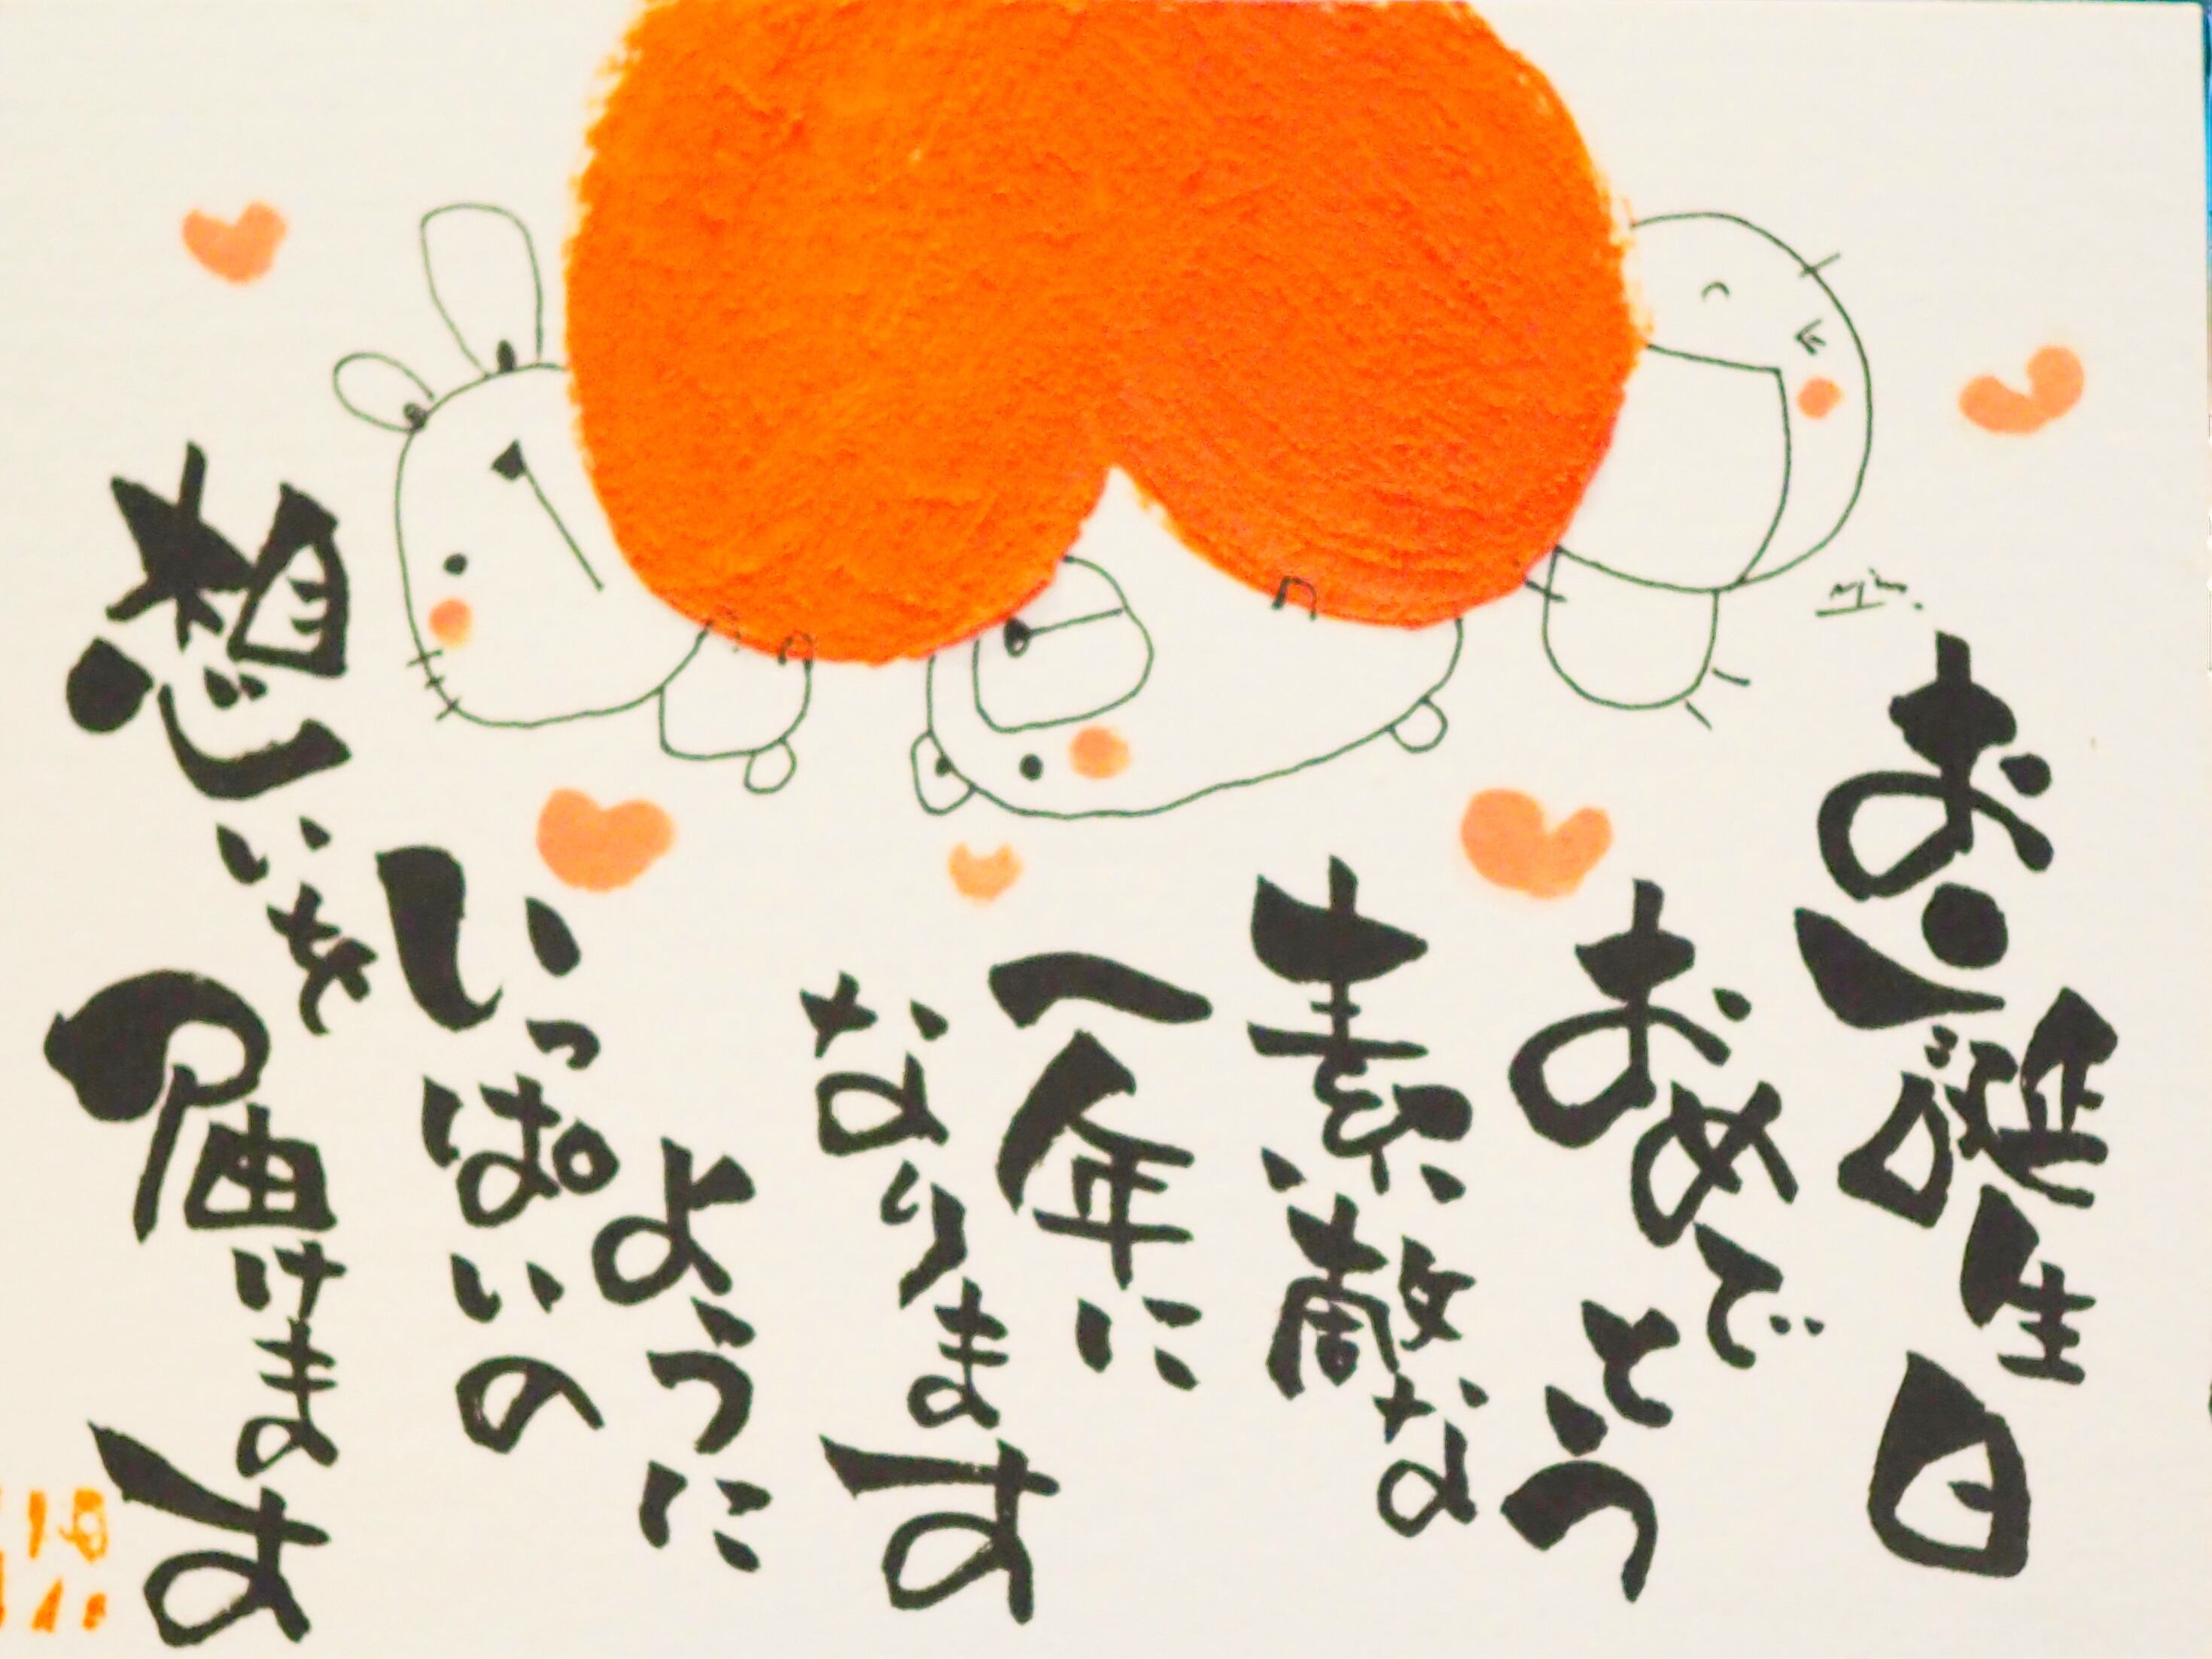 お誕生日
おめでとう
素敵な
一年に
なります
ように
いっぱいの
想いを
届けます